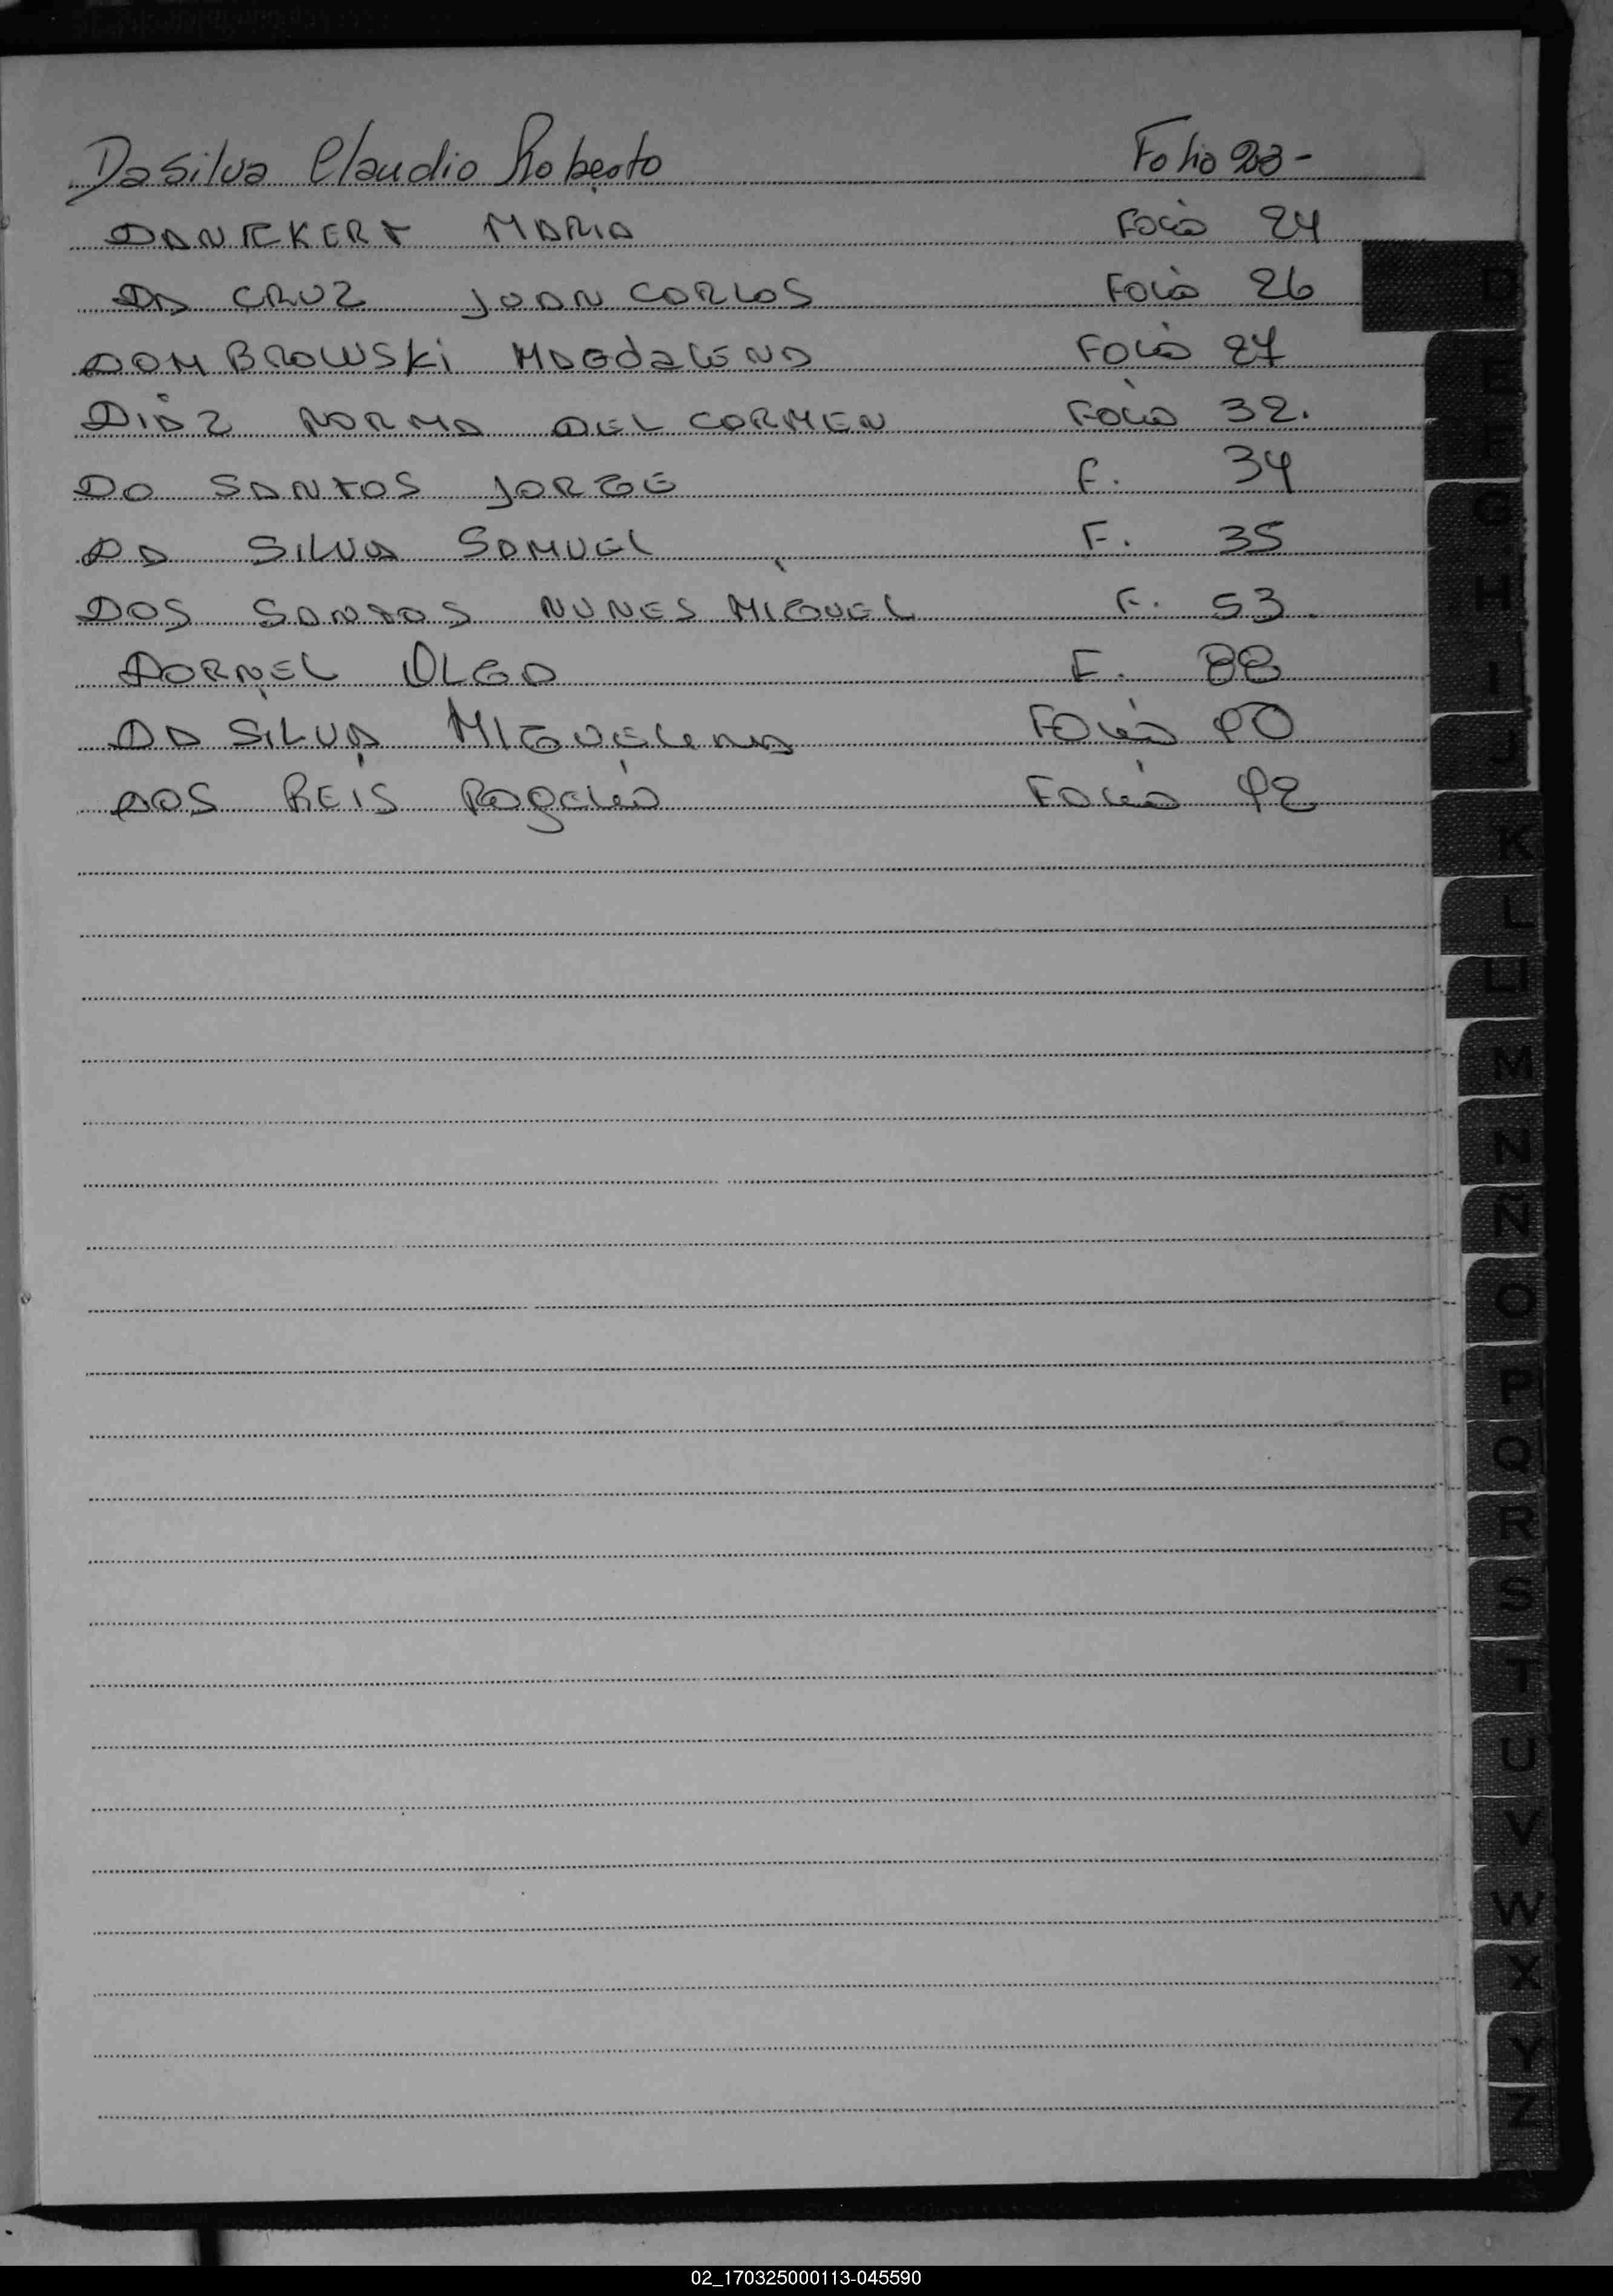 Dasilva Claudio Roberto Folio 23-
DANECKERT MARIA Folio 24
DA CRUZ JUAN CARLOS Folio 26
DOMBROWSKI MAGdaLENA Folio 27
DIAZ NORMA DEL CARMEN Folio 32.
DO SANTOS JORGE F. 34
DA SILVA SAMUEL F. 35
DOS SANTOS NUNES MIGUEL F. 53
DORNEL OLGA F. 88
DA SILVA MIGUELINA Folio 90
DOS REIS Rogelio Folio 92
D
E
F
G
H
I
J
K
L
LL
M
N
Ñ
O
P
Q
R
S
T
U
V
W
X
Y
Z
02_170325000113-045590